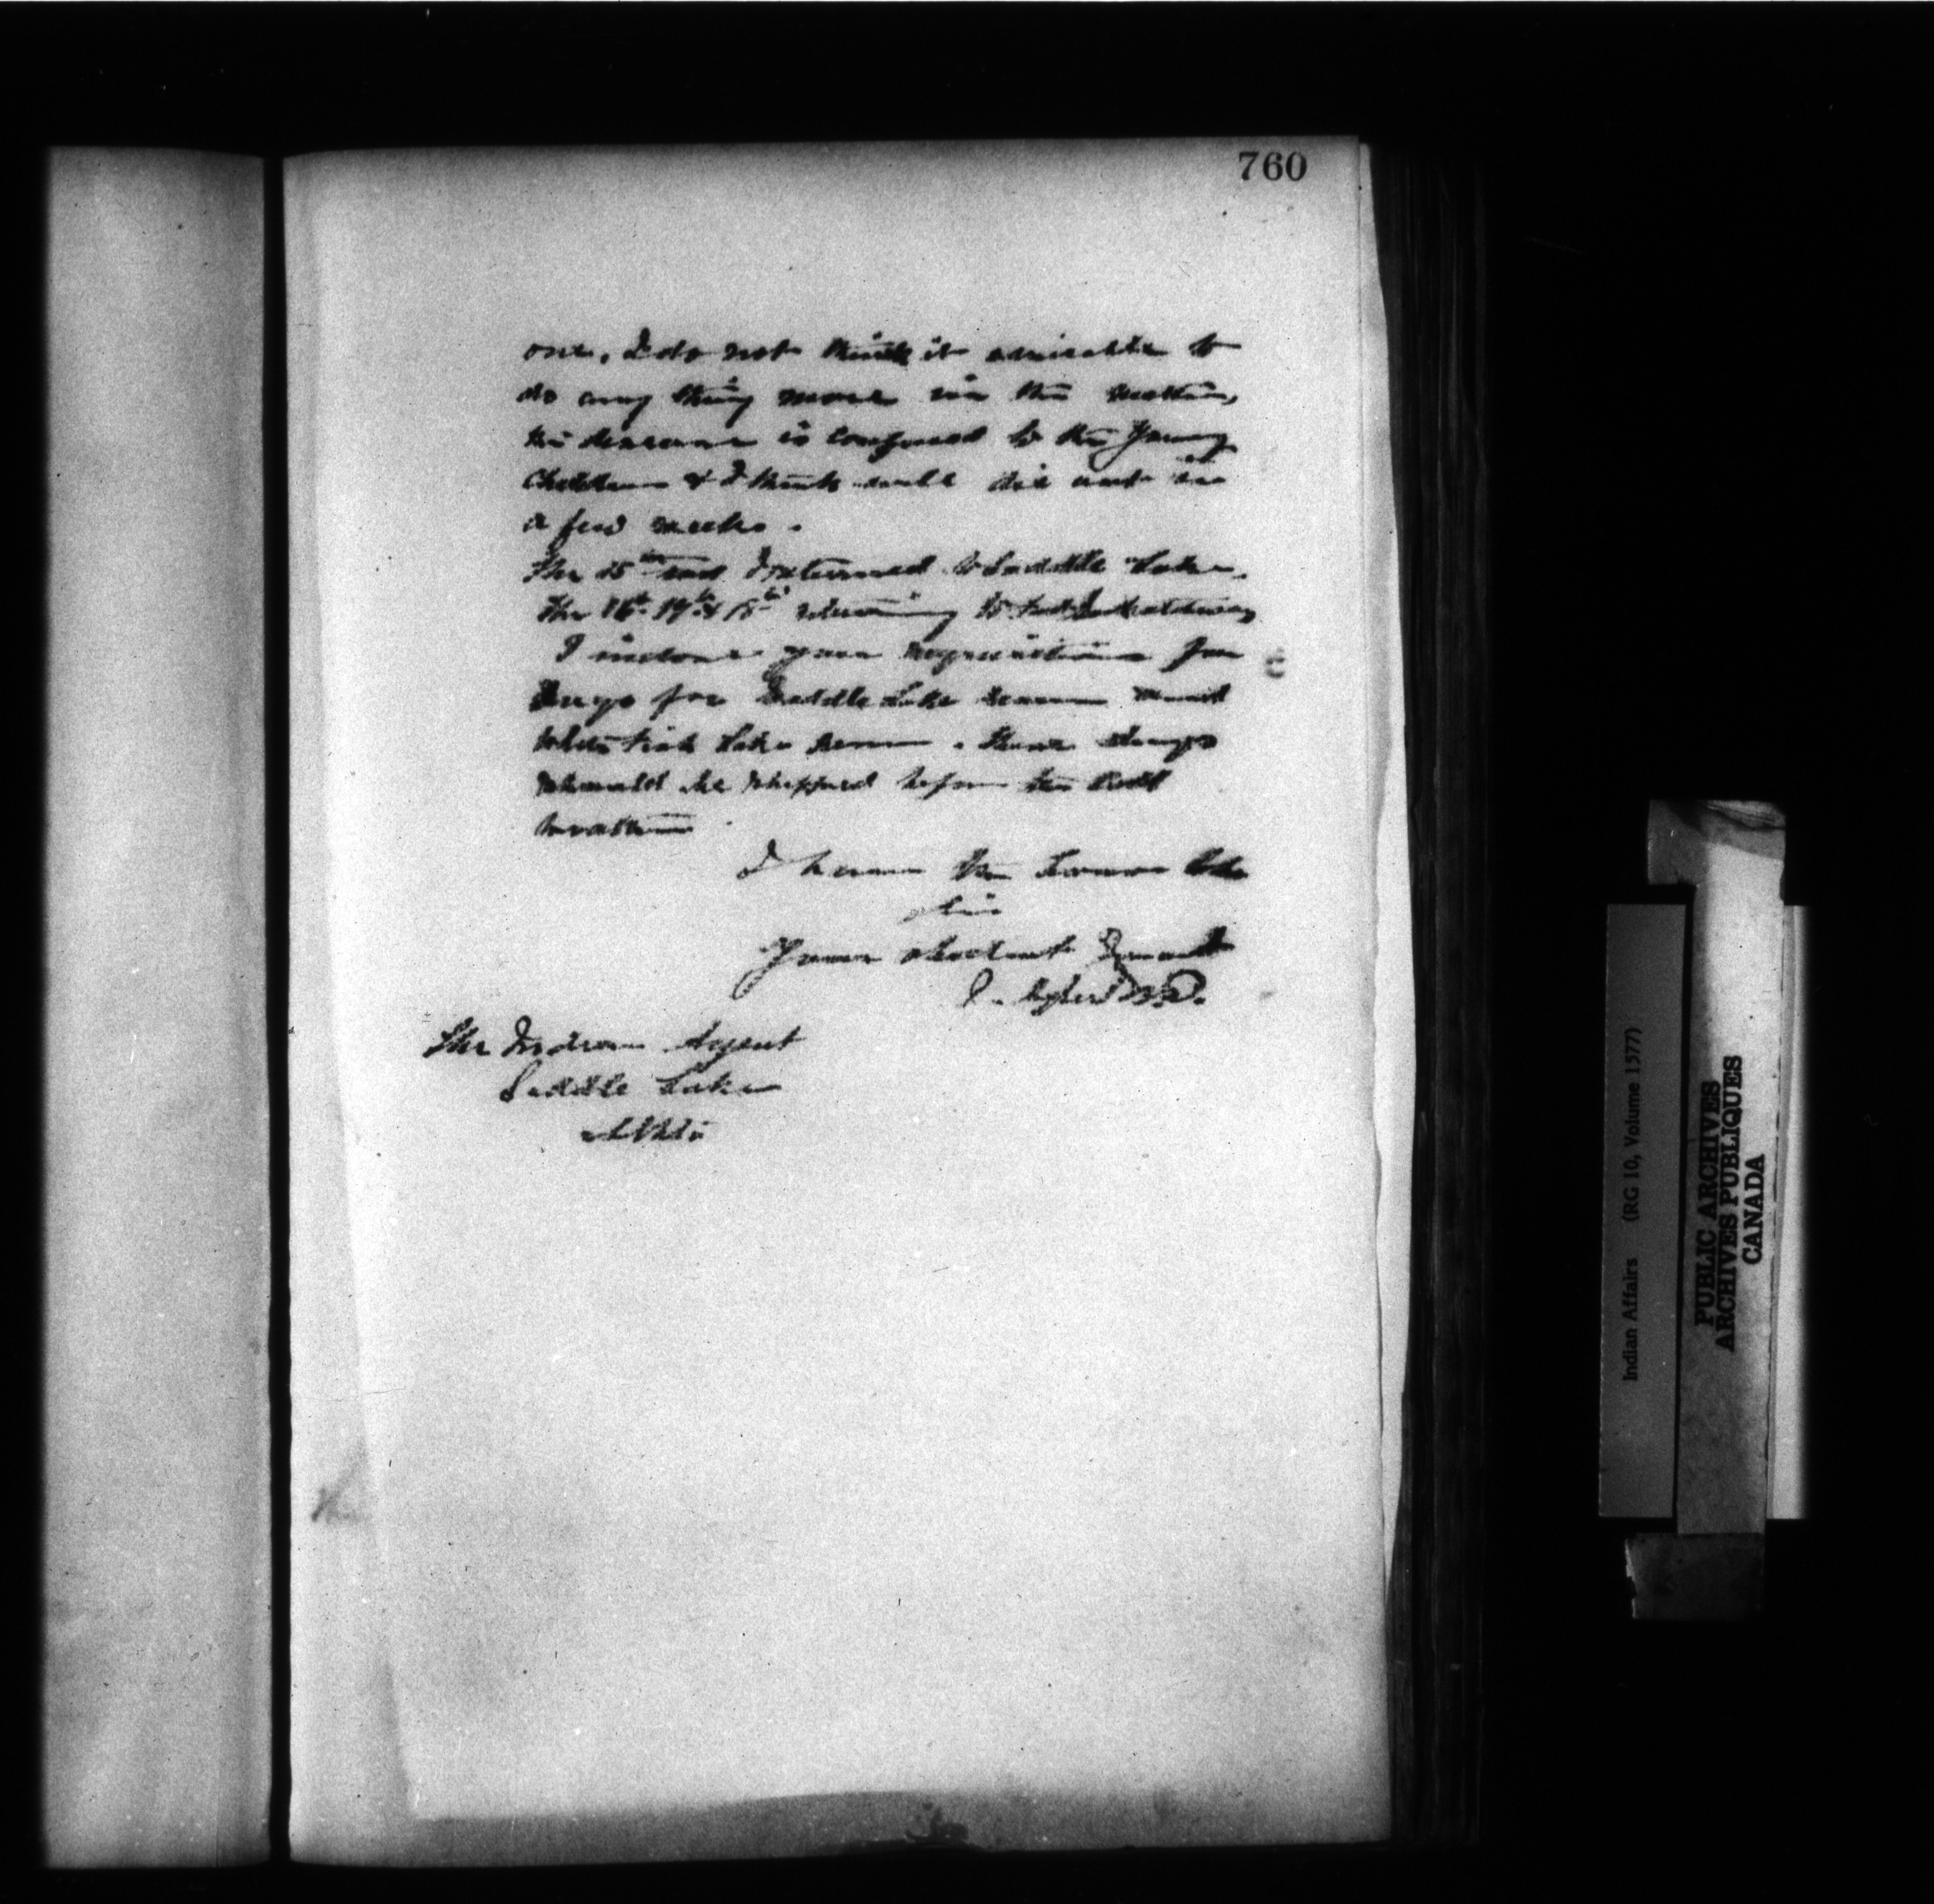 760
one, I do not think it advisable to
do any thing more in the matter,
the disease is confined to the young
Children & I think will die out in
a few weeks.
The 15th I returned to Saddle Lake.
The 16th 17th & 18th returning to Fort Saskatchewan
I inclose your requisitions for
Drugs for Saddle Lake reserve and
White Fish Lake reserve. these drugs
should be shipped before the cold
weather
I have the honour to be
Sir
Your obedient Servant
M.D.
The Indian Agent
Saddle Lake
Alta
Indian Affairs (RG 10, Volume 1577)
PUBLIC ARCHIVES
ARCHIVES PUBLIQUES
CANADA